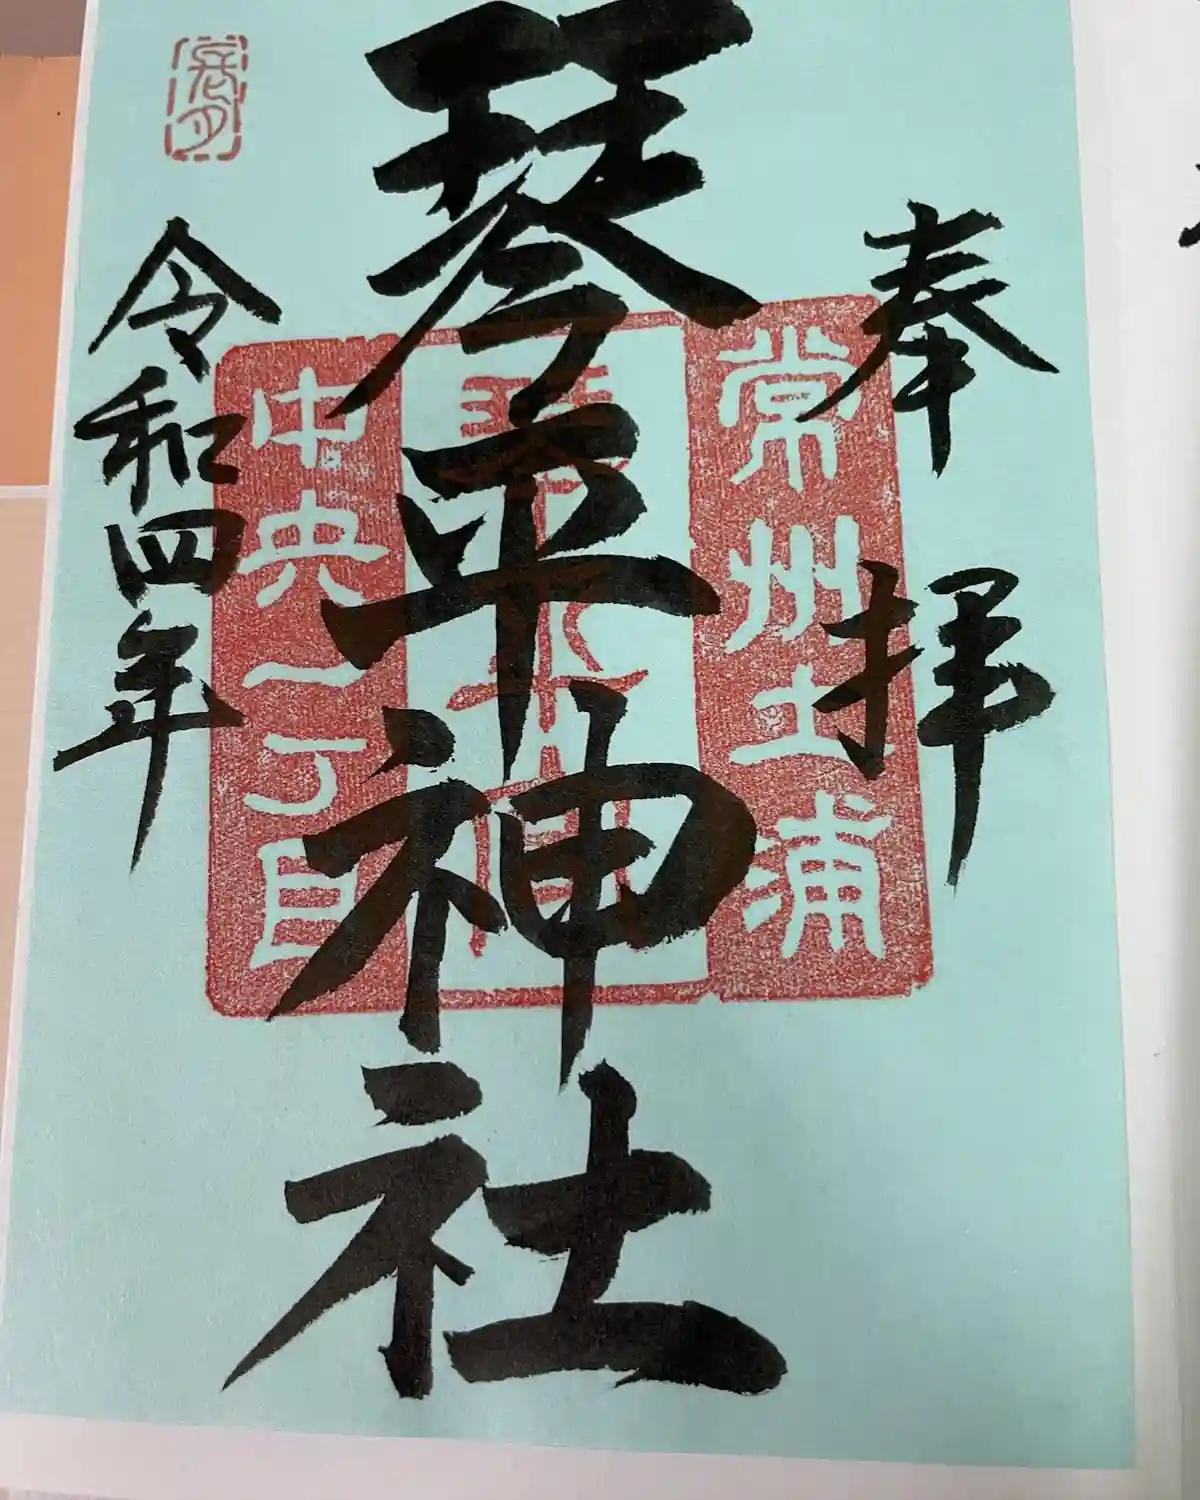 奉拝
常州土浦
琴平神社
中央一丁目
令和四年